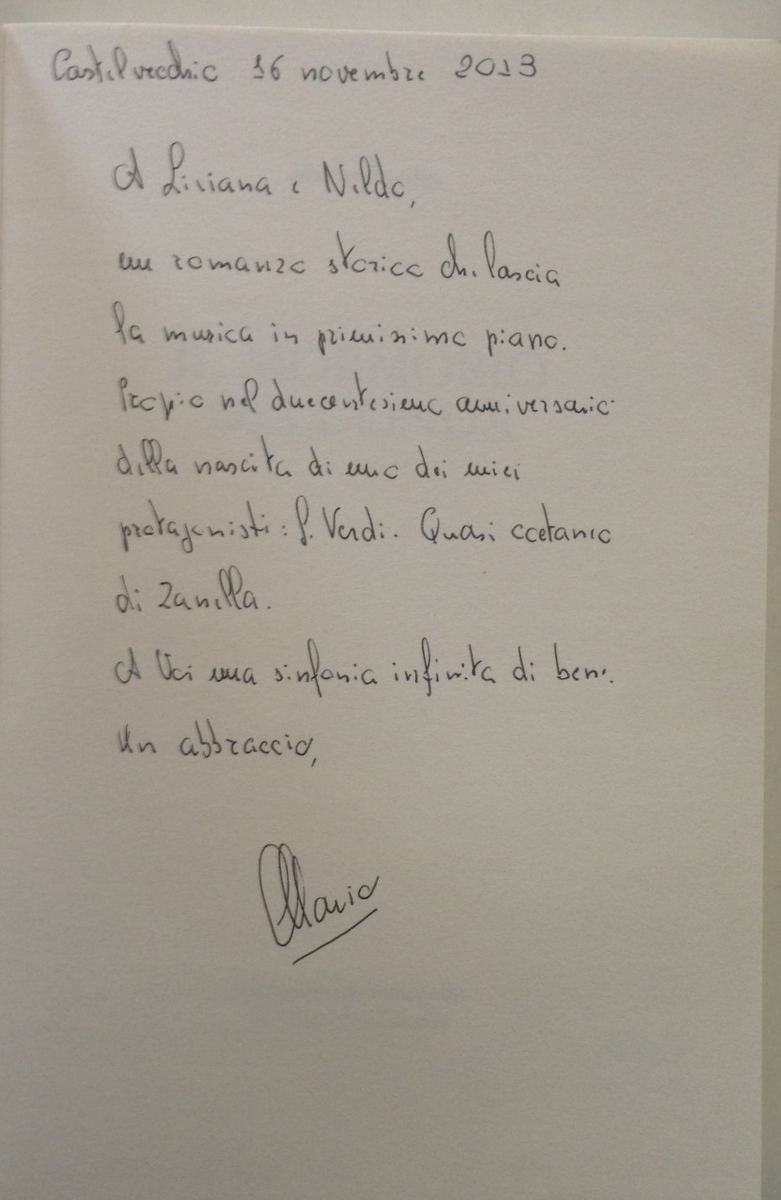 Castelvecchio 16 novembre 2013
A Liviana e Nildo,
un romanzo storico che lascia
la musica in primissimo piano.
Proprio nel duecentesimo anniversario
della nascita di uno dei miei
protagonisti: G. Verdi. Quasi coetaneo
di Zanella.
A Voi una sinfonia infinita di bene.
Un abbraccio,
Mario